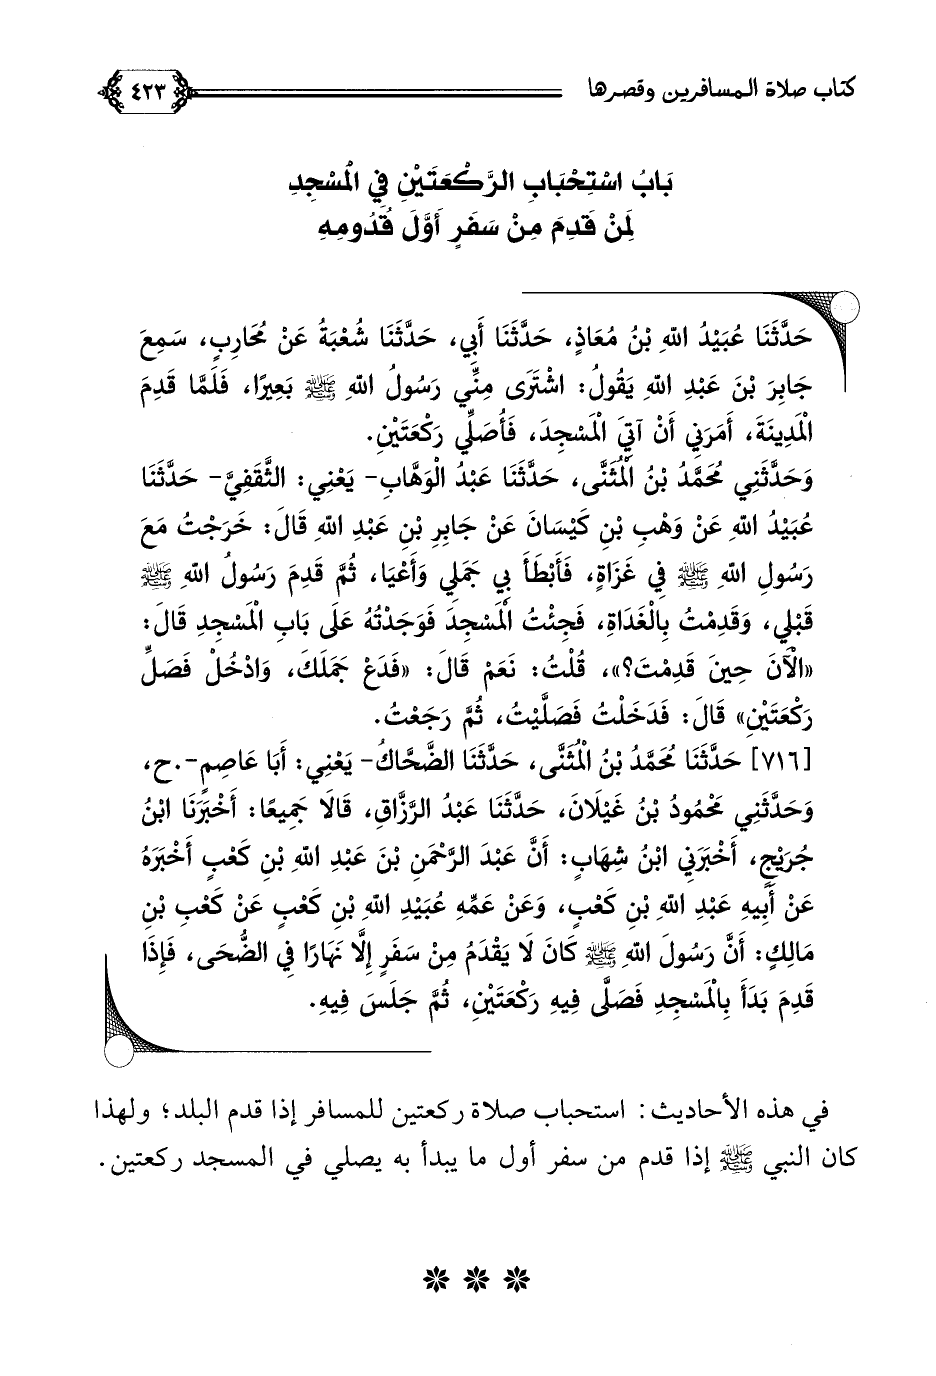 كتاب صلاة المسافرين وقصرها
٤٢٣
بَابُ اسْتِحْبَابِ الرَّكْعَتَيْنِ فِي الْمَسْجِدِ
لِمَنْ قَدِمَ مِنْ سَفَرٍ أَوَّلَ قُدُومِهِ
حَدَّثَنَا عُبَيْدُ اللهِ بْنُ مُعَاذٍ، حَدَّثَنَا أَبِي، حَدَّثَنَا شُعْبَةُ عَنْ مُحَارِبٍ، سَمِعَ
جَابِرَ بْنَ عَبْدِ اللهِ يَقُولُ: اشْتَرَى مِنِّي رَسُولُ اللهِ ﷺ بَعِيرًا، فَلَمَّا قَدِمَ
الْمَدِينَةَ، أَمَرَنِي أَنْ آتِيَ الْمَسْجِدَ، فَأُصَلِّي رَكْعَتَيْنِ.
وَحَدَّثَنِي مُحَمَّدُ بْنُ الْمُثَنَّى، حَدَّثَنَا عَبْدُ الْوَهَّابِ- يَعْنِي: الثَّقَفِيَّ- حَدَّثَنَا
عُبَيْدُ اللهِ عَنْ وَهْبِ بْنِ كَيْسَانَ عَنْ جَابِرِ بْنِ عَبْدِ اللهِ قَالَ: خَرَجْتُ مَعَ
رَسُولِ اللهِ ﷺ فِي غَزَاةٍ، فَأَبْطَأَ بِي جَمَلِي وَأَعْيَا، ثُمَّ قَدِمَ رَسُولُ اللهِ ﷺ
قَبْلِي، وَقَدِمْتُ بِالْغَدَاةِ، فَجِئْتُ الْمَسْجِدَ فَوَجَدْتُهُ عَلَى بَابِ الْمَسْجِدِ قَالَ:
«الْآنَ حِينَ قَدِمْتَ؟»، قُلْتُ: نَعَمْ قَالَ: «فَدَعْ جَمَلَكَ، وَادْخُلْ فَصَلِّ
رَكْعَتَيْنِ» قَالَ: فَدَخَلْتُ فَصَلَّيْتُ، ثُمَّ رَجَعْتُ.
[٧١٦] حَدَّثَنَا مُحَمَّدُ بْنُ الْمُثَنَّى، حَدَّثَنَا الضَّحَّاكُ- يَعْنِي: أَبَا عَاصِمٍ-.ح،
وَحَدَّثَنِي مَحْمُودُ بْنُ غَيْلَانَ، حَدَّثَنَا عَبْدُ الرَّزَّاقِ، قَالَا جَمِيعًا: أَخْبَرَنَا ابْنُ
جُرَيْجٍ، أَخْبَرَنِي ابْنُ شِهَابٍ: أَنَّ عَبْدَ الرَّحْمَنِ بْنَ عَبْدِ اللهِ بْنِ كَعْبٍ أَخْبَرَهُ
عَنْ أَبِيهِ عَبْدِ اللهِ بْنِ كَعْبٍ، وَعَنْ عَمِّهِ عُبَيْدِ اللهِ بْنِ كَعْبٍ عَنْ كَعْبِ بْنِ
مَالِكٍ: أَنَّ رَسُولَ اللهِ ﷺ كَانَ لَا يَقْدَمُ مِنْ سَفَرٍ إِلَّا نَهَارًا فِي الضُّحَى، فَإِذَا
قَدِمَ بَدَأَ بِالْمَسْجِدِ فَصَلَّى فِيهِ رَكْعَتَيْنِ، ثُمَّ جَلَسَ فِيهِ.
في هذه الأحاديث: استحباب صلاة ركعتين للمسافر إذا قدم البلد؛ ولهذا
كان النبي ﷺ إذا قدم من سفر أول ما يبدأ به يصلي في المسجد ركعتين.